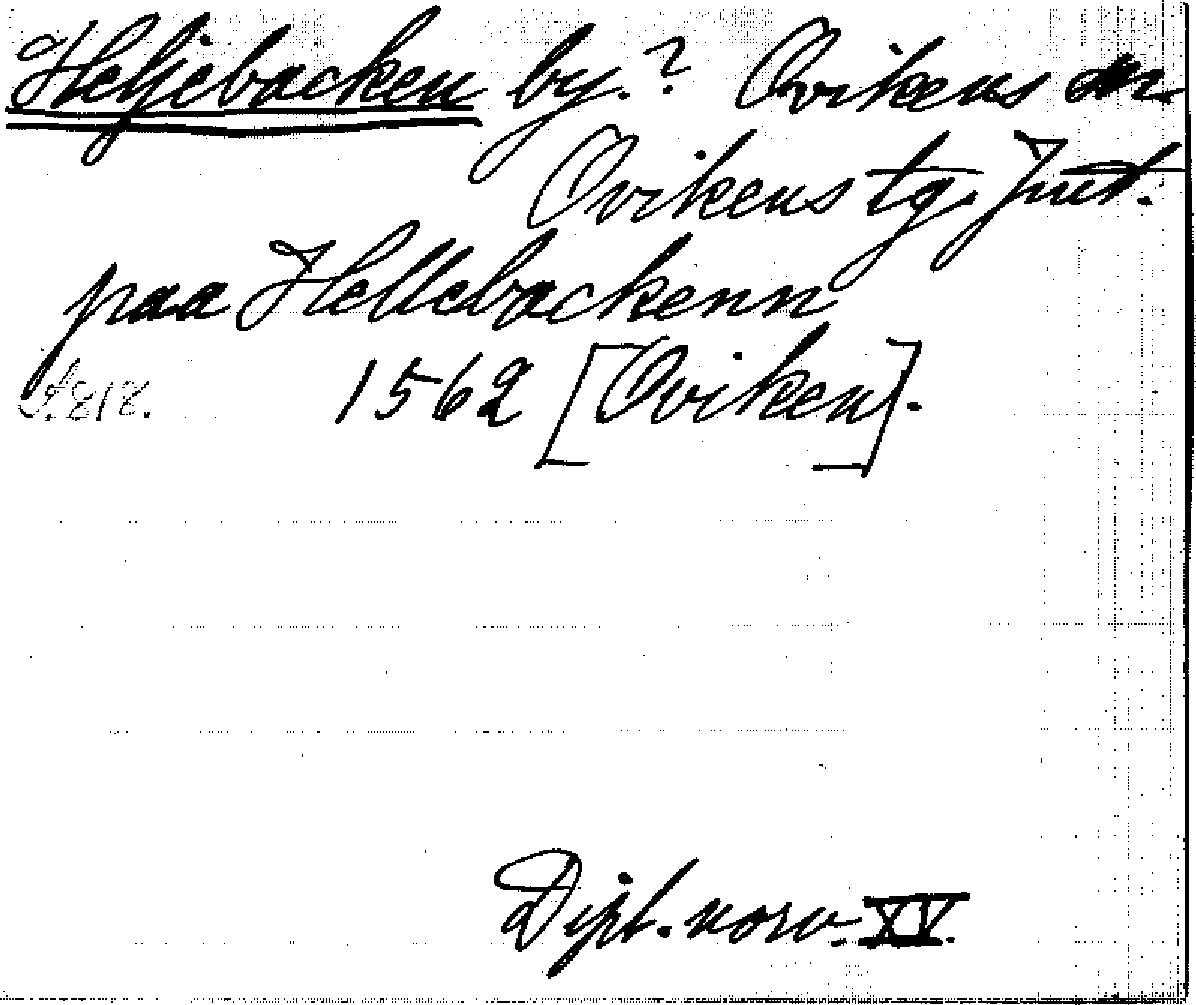 Heljebacken by.? Ovikens sn.
Ovikens tg. Jmt.
paa Hellebackenn
1562 [Oviken].
s. 818.
Dipl. norv. XV.